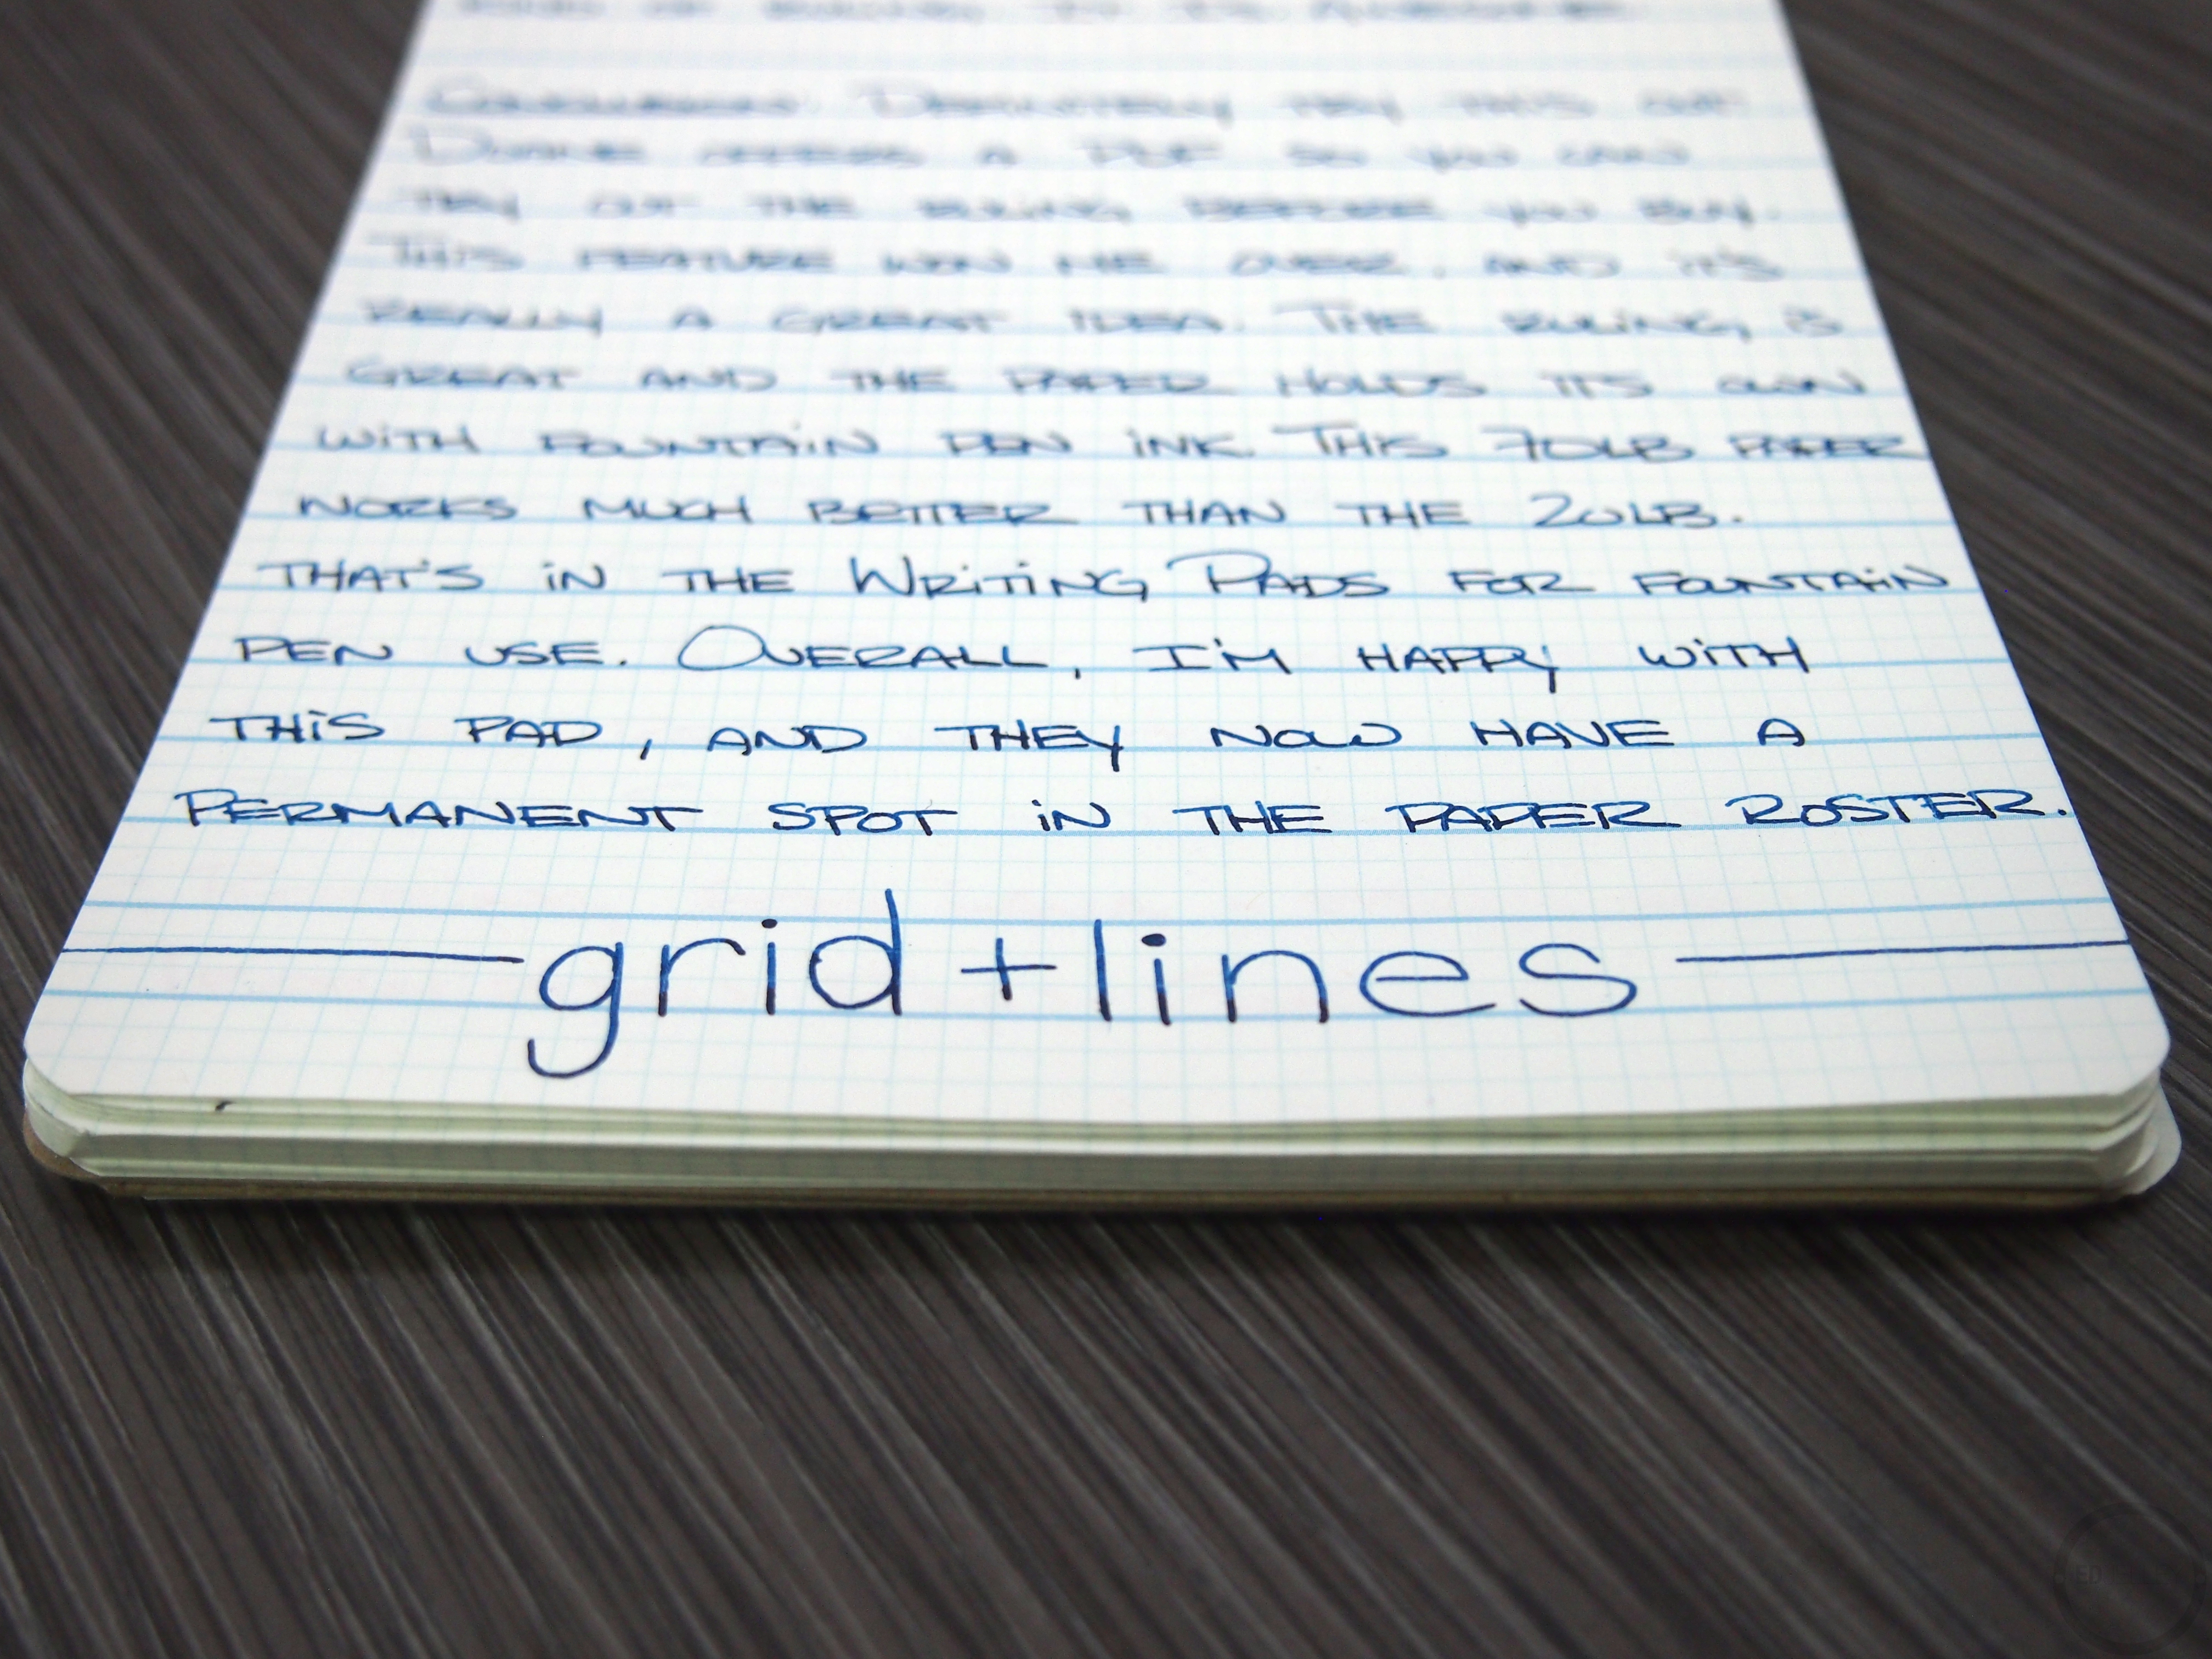 DEFINITELY TRY THIS OUT
A PDF SO YOU CAN
TRY OUT THE RULING BEFORE YOU BUY.
THIS FEATURE WON ME OVER, AND IT'S
REALLY A GREAT IDEA. THE RULING IS
GREAT AND THE PAPER HOLDS ITS OWN
WITH FOUNTAIN PEN INK. THIS 70LB PAPER
WORKS MUCH BETTER THAN THE 20LB.
THAT'S IN THE WRITING PADS FOR FOUNTAIN
PEN USE. OVERALL, I'M HAPPY WITH
THIS PAD, AND THEY NOW HAVE A
PERMANENT SPOT IN THE PAPER ROSTER.
grid+lines